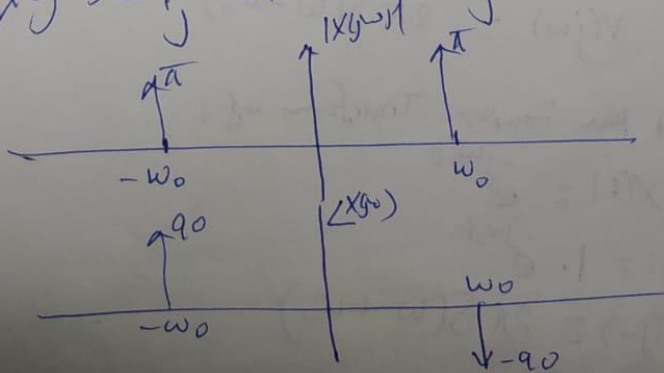 |X(jω)|
π π
-ω₀ ω₀
∠X(jω)
90
ω₀
-ω₀
-90